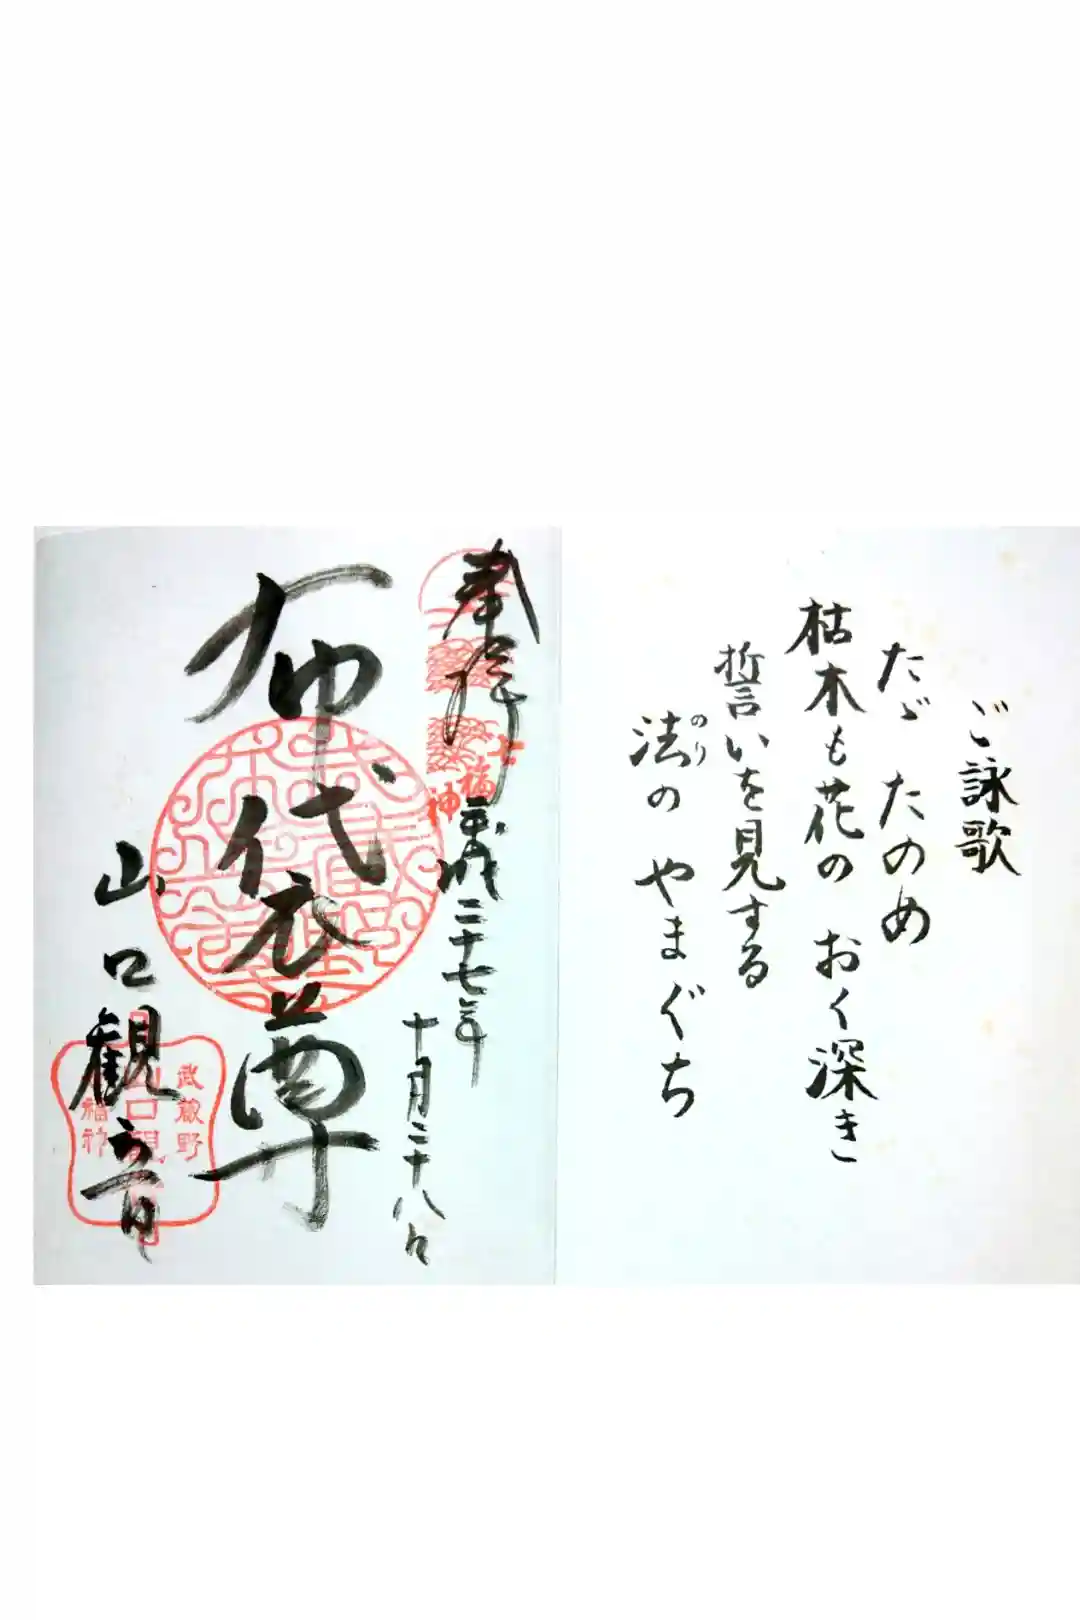 ご詠歌
たゞ たのめ
枯木も花の おく深き
誓いを見する
法の やまぐち
のり
奉拝
七福神
平成二十七年
十月二十八日
布袋尊
山口観音
武蔵野
山口観
福神